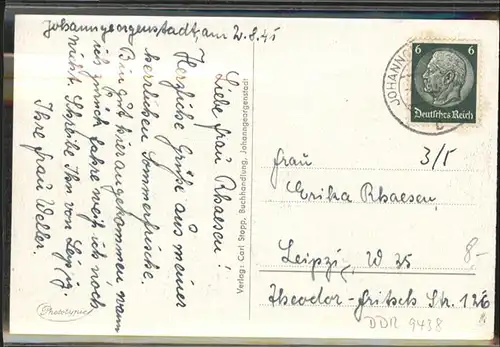 Johanngeorgenstadt, am 2.8.41
Liebe Frau Rhaesen!
Herzliche Grüße aus meiner
herrlichen Sommerfrische.
Bin gut hierangekommen, wann
ich zurück fahre weiß ich noch
nicht. Schreibe Ihn von Leipzg.
Ihre Frau Weller.
Phototypie
Verlag: Carl Stopp, Buchhandlung, Johanngeorgenstadt
JOHANNG
6 6
Deutsches Reich
3/5
Frau
Erika Rhaesen
Leipzig W 35
8.-
Theodor-Fritsch Str. 126
DDR 9438